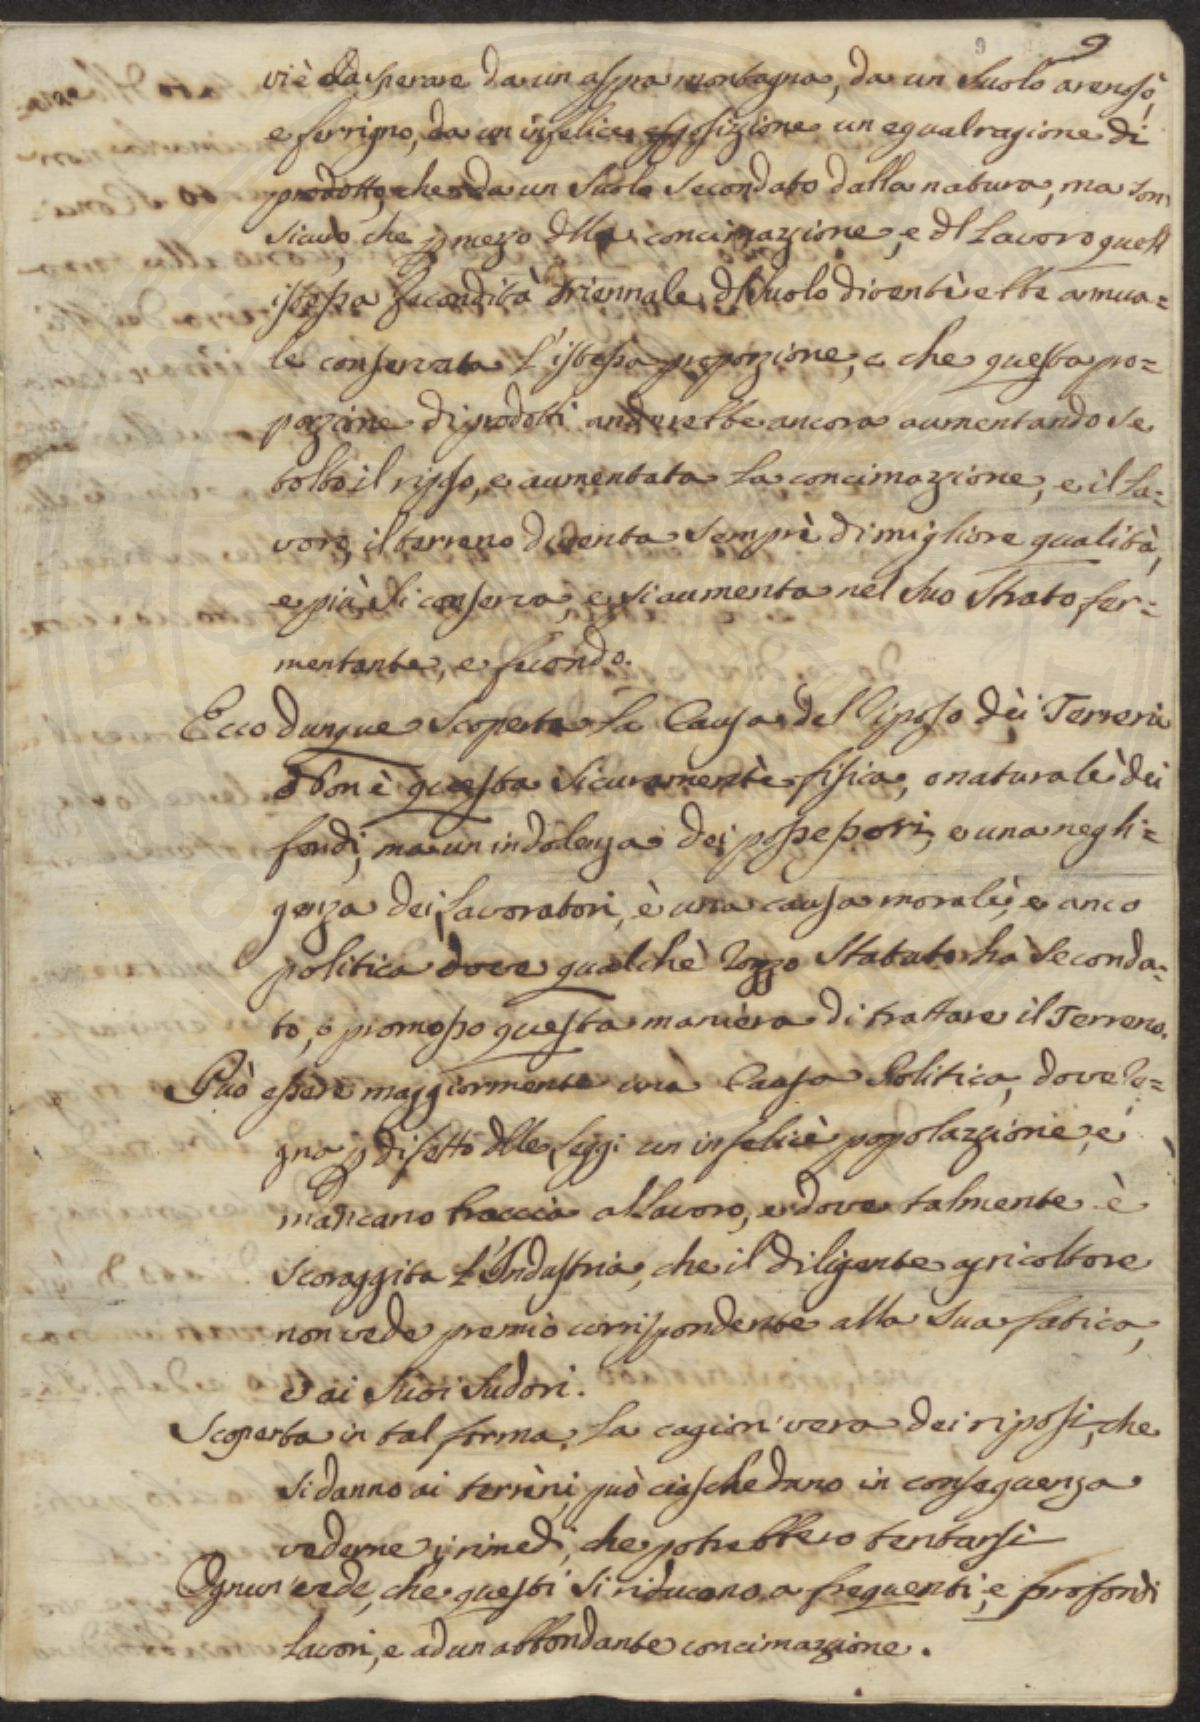 9
vi è da sperare da un aspra montagna, da un Suolo arenoso,
e ferrigno, da un infelice esposizione un egual ragione di
prodotto, che da un Suolo secondato dalla natura, ma son
sicuro, che p mezo dlla concimazione, e dl Lavoro quell
istessa fecondità triennale dl Suolo diventerebbe annua=
le conservata l'istessa proporzione, e che questa pro=
porzione di prodotti anderebbe ancora aumentando se
tolto il riposo, e aumentata la concimazione, e il La=
voro, il terreno diventa semprè di migliore qualità,
e più si conserva, e si aumenta nel suo strato fer=
mentante, e fecondo.
Ecco dunque scoperta la Causa del Riposo dèi Terreni
Non è questa sicuramentè fisica, o naturalè dei
fondi, ma un indolenza dei possessori, e una negli=
genza dei Lavoratori, è una causa moralè, e anco
politica dove qualchè rozzo Statuto hà Seconda=
to, o promosso questa manièra di trattare il Terreno.
Può essere maggiormente una Causa Politica, dove re=
gna p difetto dlle Leggi un infelicè popolazione, e
mancano braccia al lavoro, e dove talmente è
scoraggita l'Industria, che il diligente agricoltore
non vede premio corrispondente alla sua fatica,
e ai suoi sudori.
Scoperta in tal forma la cagion vera dei riposi, che
si danno ai terrèni, può ciascheduno in conseguenza
vederne i rimedi, che potrebbero tentarsi
Ognun vede, che questi si riducono a frequenti, e profondi
Lavori, e ad un abbondante concimazione.